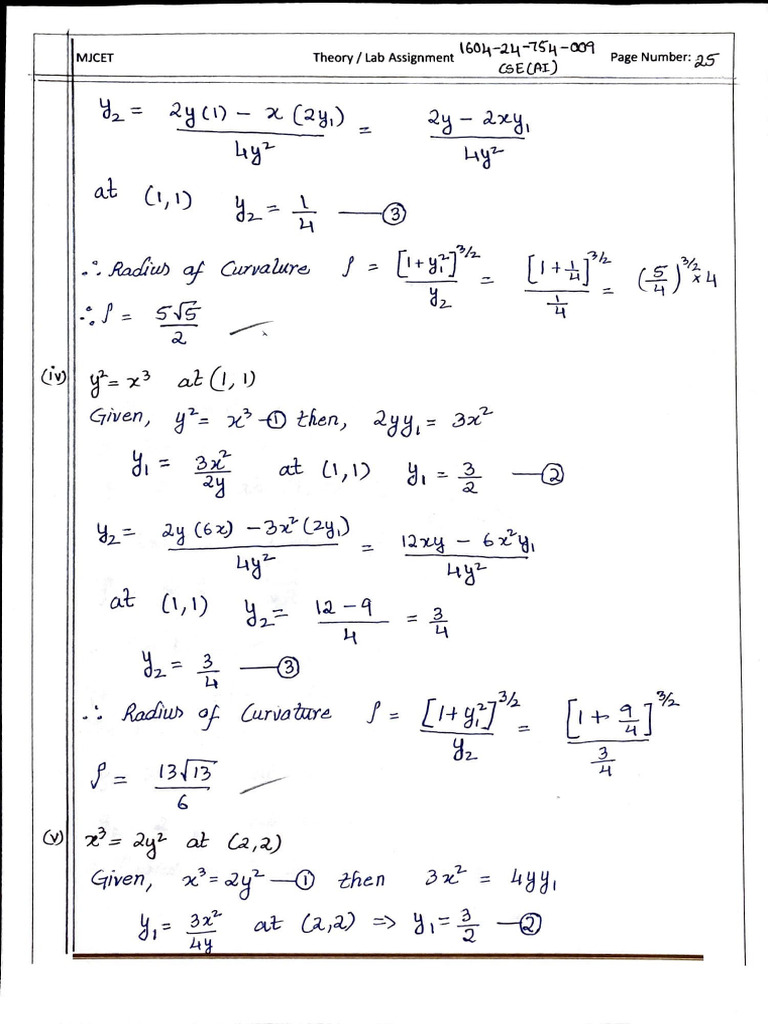 MJCET Theory / Lab Assignment 1604-24-754-009 CSE(AI) Page Number: 25
y₂ = 2y(1) - x(2y₁) / 4y² = 2y - 2xy₁ / 4y²
at (1,1) y₂ = 1/4 —③
∴ Radius of Curvature ρ = [1+y₁²]^3/2 / y₂ = [1+1/4]^3/2 / 1/4 = (5/4)^3/2 × 4
∴ ρ = 5√5 / 2
(iv) y² = x³ at (1,1)
Given, y² = x³ —① then, 2yy₁ = 3x²
y₁ = 3x² / 2y at (1,1) y₁ = 3/2 —②
y₂ = 2y(6x) - 3x²(2y₁) / 4y² = 12xy - 6x²y₁ / 4y²
at (1,1) y₂ = 12-9 / 4 = 3/4
y₂ = 3/4 —③
∴ Radius of Curvature ρ = [1+y₁²]^3/2 / y₂ = [1+9/4]^3/2 / 3/4
ρ = 13√13 / 6
(v) x³ = 2y² at (2,2)
Given, x³ = 2y² —① then 3x² = 4yy₁
y₁ = 3x² / 4y at (2,2) ⇒ y₁ = 3/2 —②